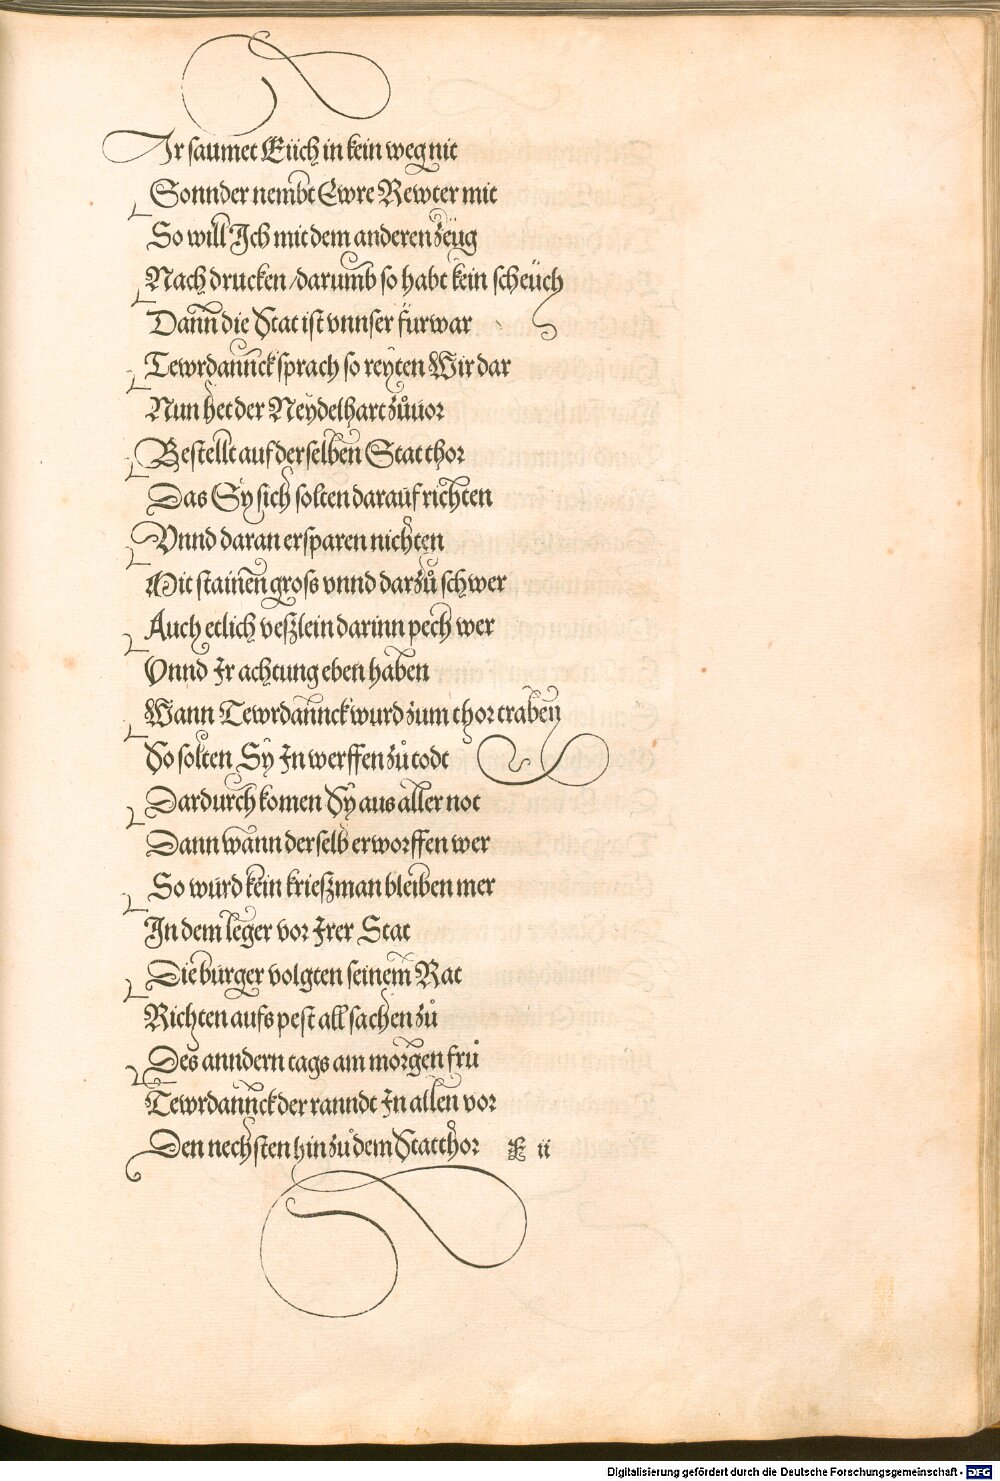 Ir saumet Eüch in kein weg nit
Sonnder nembt Ewre Rewter mit
So will Ich mit dem anderen zeüg
Nach drucken / darumb so habt kein scheüch
Dann die Stat ist vnnser fürwar
Tewrdannck sprach so reyten Wir dar
Nun het der Neydelhart zůuor
Bestellt auf derselben Stat thor
Das Sy sich solten darauf richten
Vnnd daran ersparen nichten
Mit stainen gross vnnd darzů schwer
Auch etlich veßlein darinn pech wer
Vnnd Ir achtung eben haben
Wann Tewrdannck wurd zum thor traben
So solten Sy In werffen zů todt
Dardurch komen Sy aus aller not
Dann wann derselb erworffen wer
So wurd kein krießman bleiben mer
In dem leger vor Irer Stat
Die burger volgten seinem Rat
Richten aufs pest all sachen zů
Des anndern tags am morgen frů
Tewrdannck der ranndt In allen vor
Den nechsten hin zů dem Statthor E ii
Digitalisierung gefördert durch die Deutsche Forschungsgemeinschaft - DFG